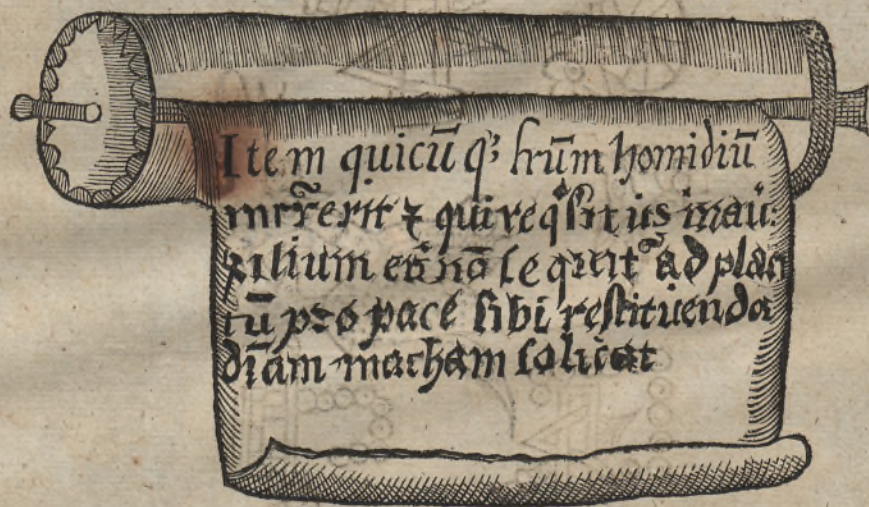 Item quicū qꝫ hrūm homidiū
qui req̄sit us inaū:
xilium eī nō seq̄uit᷑ ad placi
tū pro pace sibi restituenda
dīam macham solicat